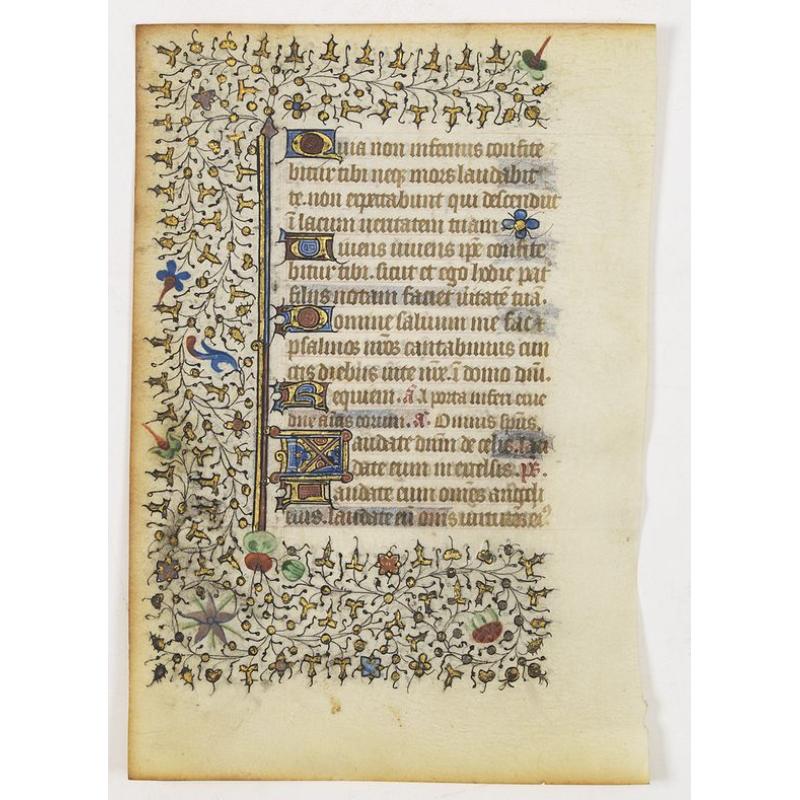 Quia non infernus confite
bitur tibi neq; mors laudabit
te. non expectabunt qui descendūt
ī lacum ueritatem tuam
Uiuens uiuens ip̄e confite
bitur tibi. sicut et ego hodie pat̄
filiis notam faciet ūitatē tuā.
Domine saluum me fac &
psalmos nr̄os cantabimus cun
ctis diebus uite nr̄e. ī domo dn̄i.
Requiem. ā A porta inferi erue
dn̄e aīas eorum. a. Omnis sp̄ns.
Laudate dn̄m de celis. lau
date eum in excelsis. ps.
Laudate eum om̄es angeli
eius. laudate eū om̄s uirtutes ei⁹